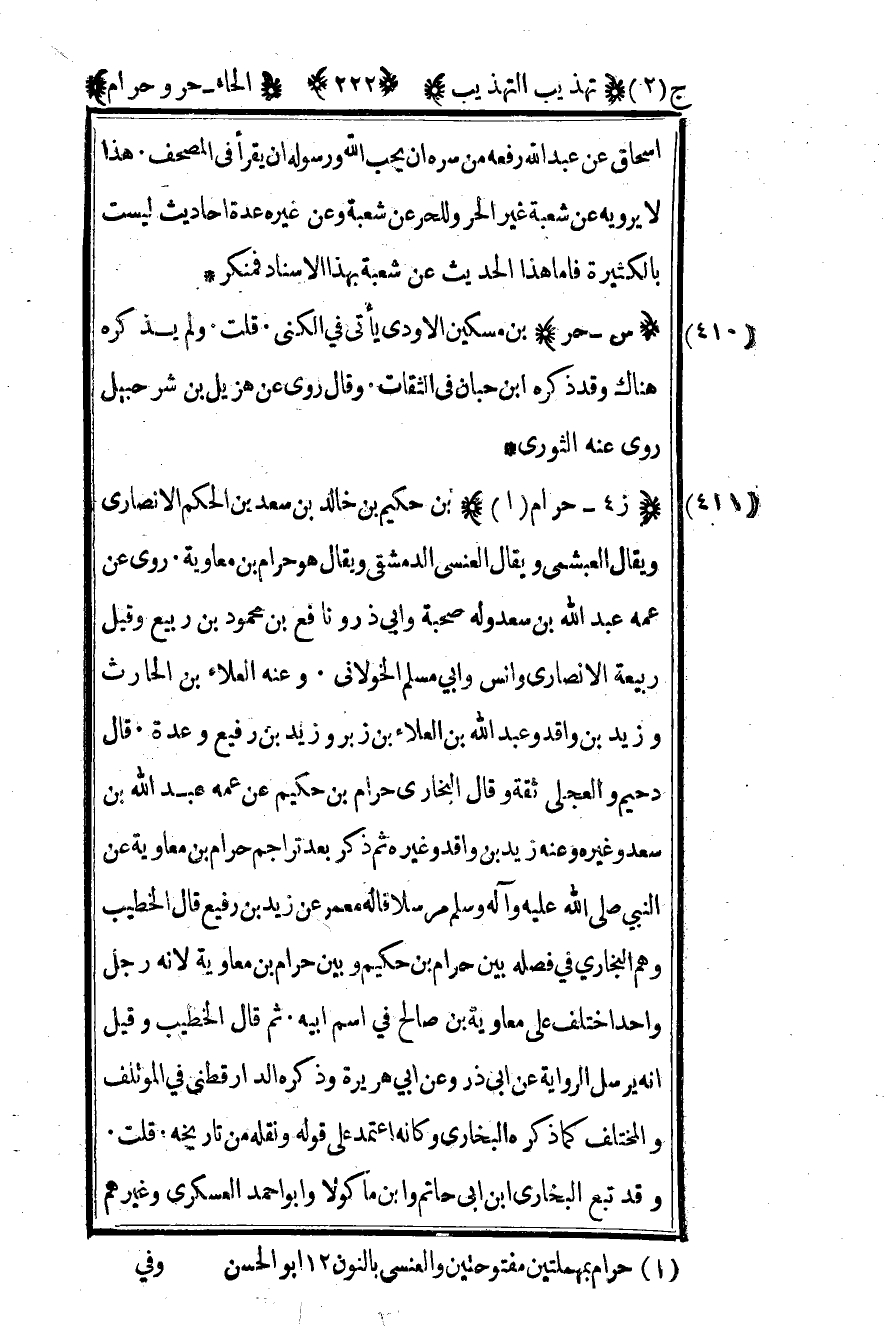 ج(٢) ﴿ تهذيب التهذيب ﴾ ﴿٢٢٢﴾ ﴿ الحاء - حر و حرام﴾
اسحاق عن عبد الله رفعه من سره ان يحب الله ورسوله ان يقرأ فى المصحف . هذا
لا يرويه عن شعبة غير الحر وللحر عن شعبة وعن غيره عدة احاديث ليست
بالكثيرة فاما هذا الحديث عن شعبة بهذا الاسناد فمنكر *
(٤١٠) ﴿ س - حر ﴾ بن مسكين الاودى يأتى في الكنى . قلت . ولم يذكره
هناك وقد ذكره ابن حبان فى الثقات . وقال روى عن هزيل بن شرحبيل
روى عنه الثورى *
(٤١١) ﴿ ز ٤ - حرام (١) ﴾ بن حكيم بن خالد بن سعد بن الحكم الانصارى
ويقال العبشمى ويقال العنسى الدمشقى ويقال هو حرام بن معاوية . روى عن
عمه عبد الله بن سعد وله صحبة وابي ذر و نافع بن محمود بن ربيع وقيل
ربيعة الانصارى وانس وابي مسلم الخولانى . و عنه العلاء بن الحارث
و زيد بن واقد وعبد الله بن العلاء بن زبر و زيد بن رفيع و عدة . قال
دحيم و العجلى ثقة و قال البخارى حرام بن حكيم عن عمه عبد الله بن
سعد وغيره وعنه زيد بن واقد وغيره ثم ذكر بعد تراجم حرام بن معاوية عن
النبي صلى الله عليه وآله وسلم مرسلا قاله معمر عن زيد بن رفيع قال الخطيب
وهم البخاري في فصله بين حرام بن حكيم و بين حرام بن معاوية لانه رجل
واحد اختلف على معاوية بن صالح في اسم ابيه . ثم قال الخطيب و قيل
انه يرسل الرواية عن ابى ذر وعن ابي هريرة وذكره الدارقطنى في الموئلف
و المختلف كما ذكره البخارى و كانه اعتمد على قوله ونقله من تاريخه . قلت .
و قد تبع البخارى ابن ابى حاتم وابن ماكولا وابو احمد العسكرى وغيرهم
(١) حرام بمهملتين مفتوحتين والعنسى بالنون ١٢ ابو الحسن وفي